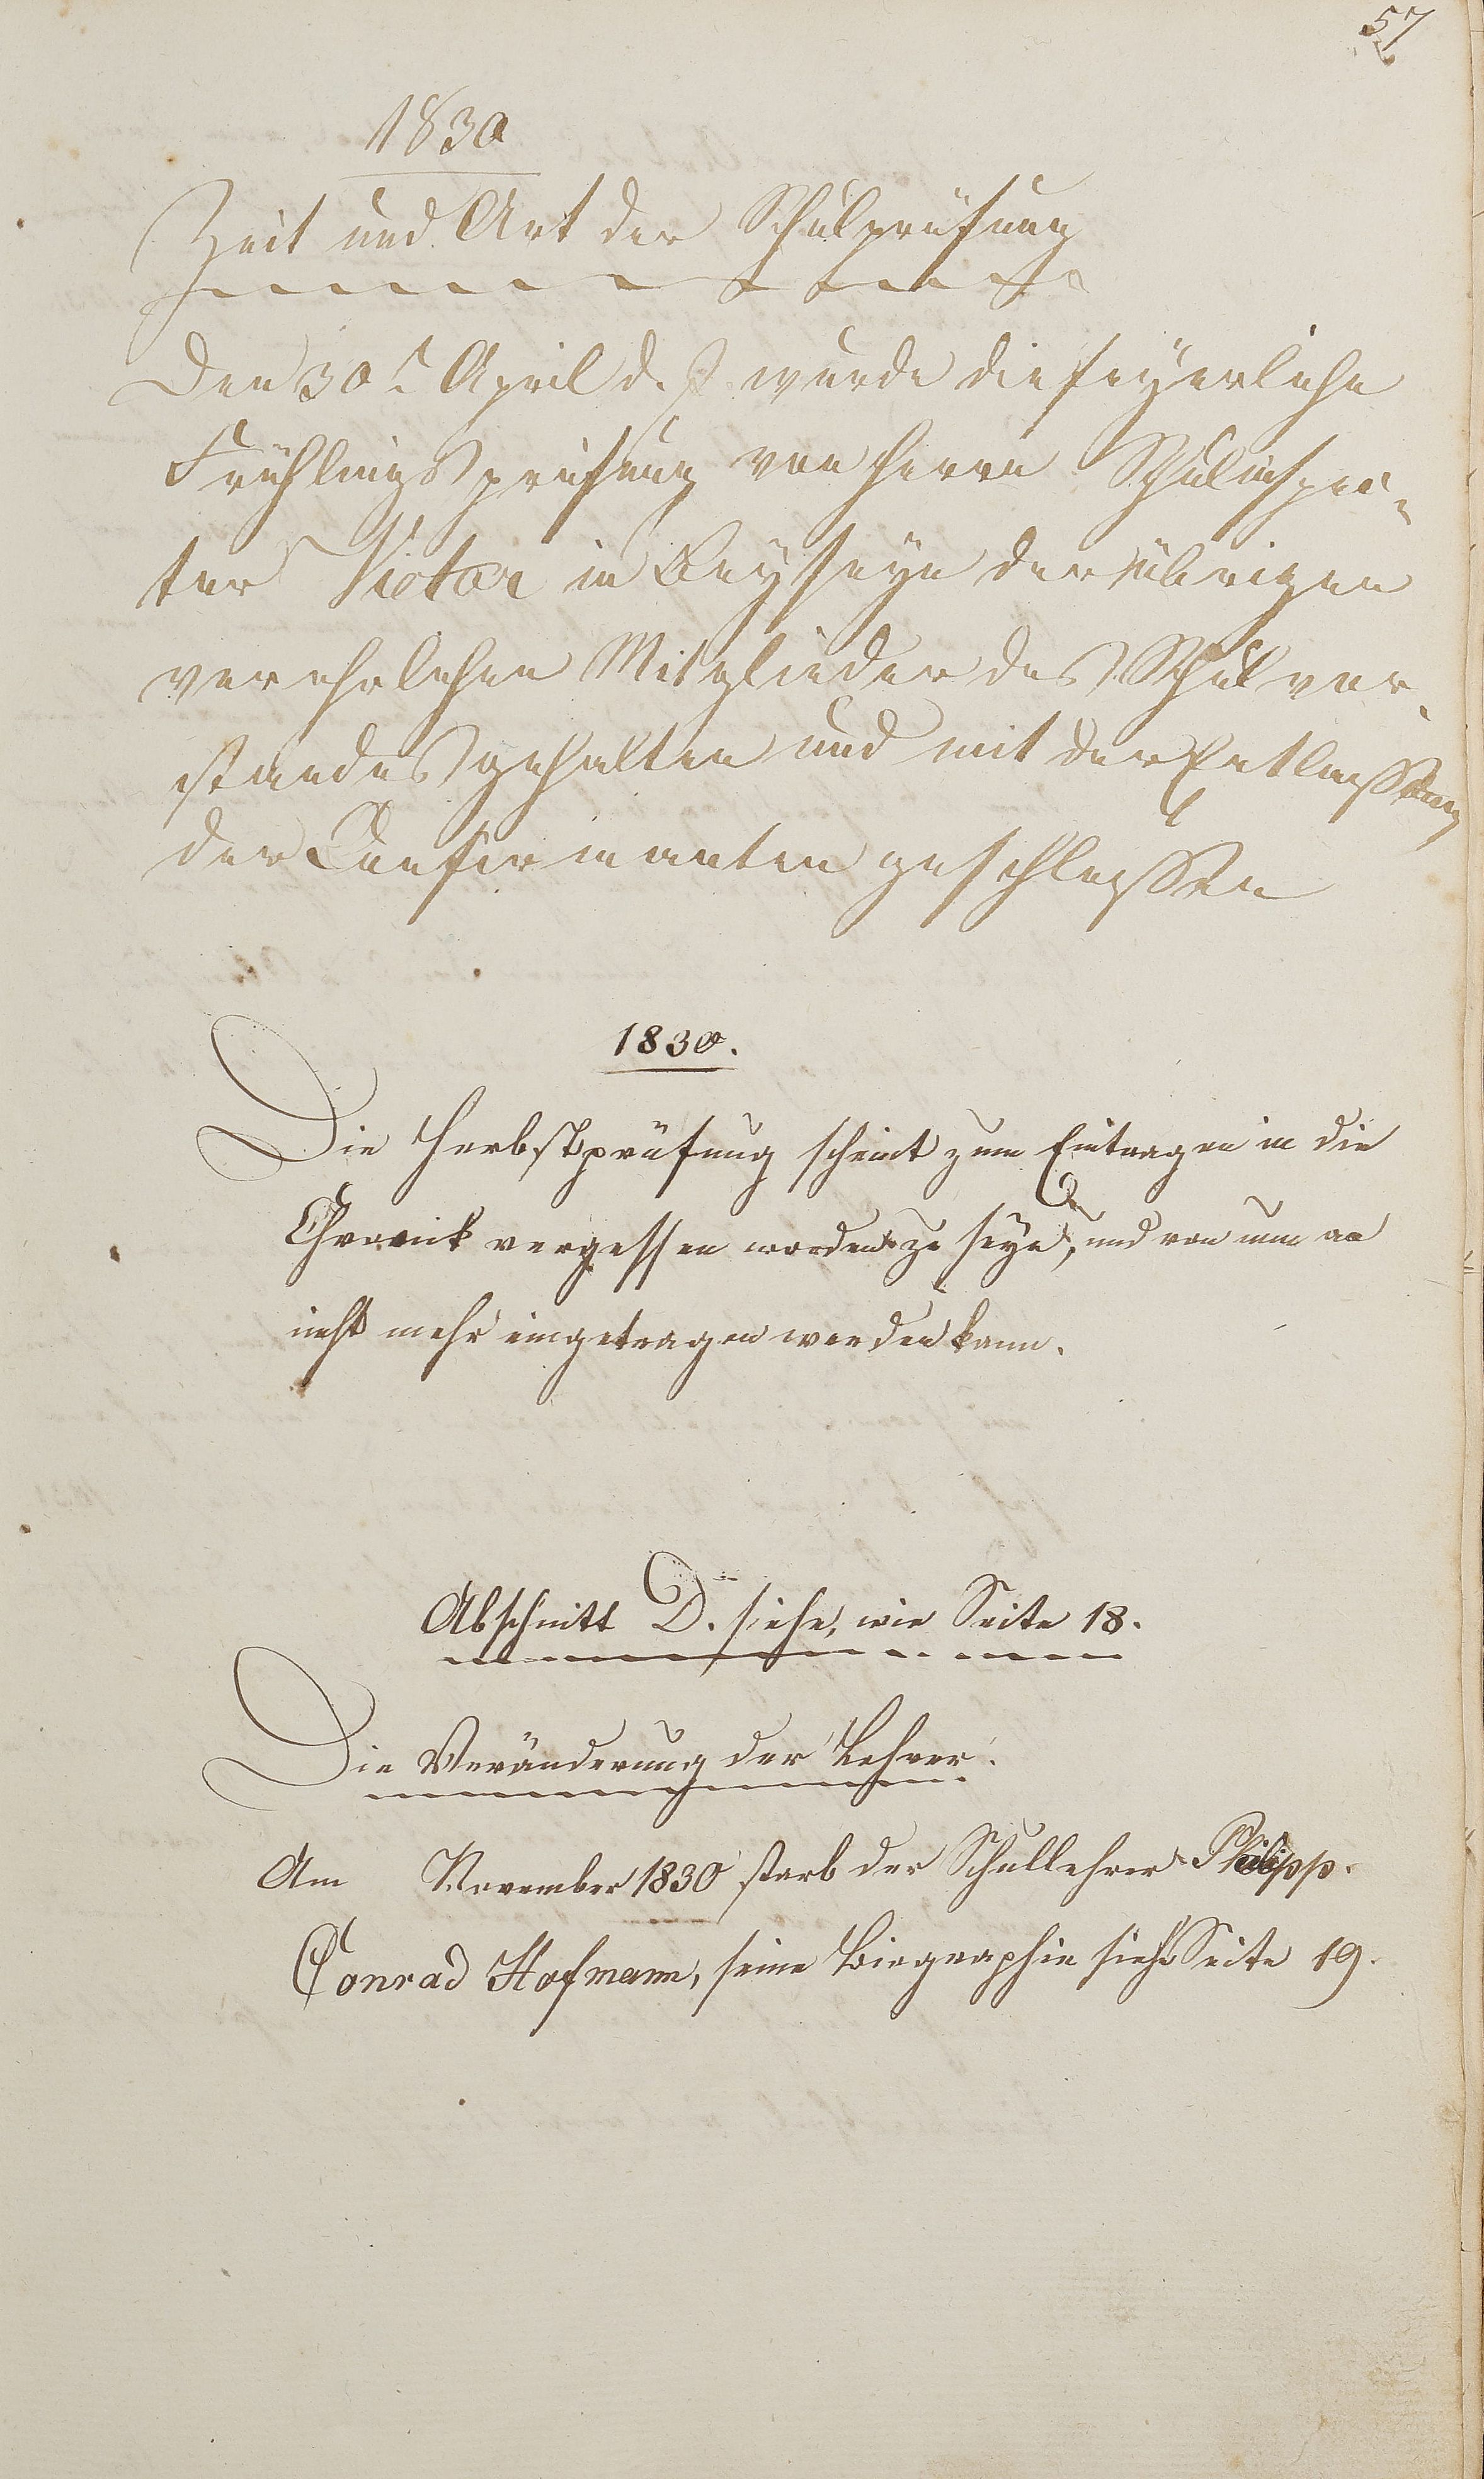 57
1830
Zeit und Art der Schulprüfung
Den 30t April d. J. wurde die feyerliche
Frühlingsprüfung von Herrn Schulinspec-
tor Vietor in Beyseyn der übrigen
verehrlichen Mitglieder des Schulvor-
standes gehalten und mit der Entlassung
der Confirmanten geschlossen
1830.
Die Herbstprüfung scheint zum Eintragen in die
Chronick vergessen worden zu seyn, und von nun an
nicht mehr eingetragen werden kann.
Abschnitt D. siehe, wie Seite 18.
Die Veränderung der Lehrer.
Am November 1830 starb der Schullehrer Philipp
Conrad Hofmann, seine Biographie siehe Seite 19.